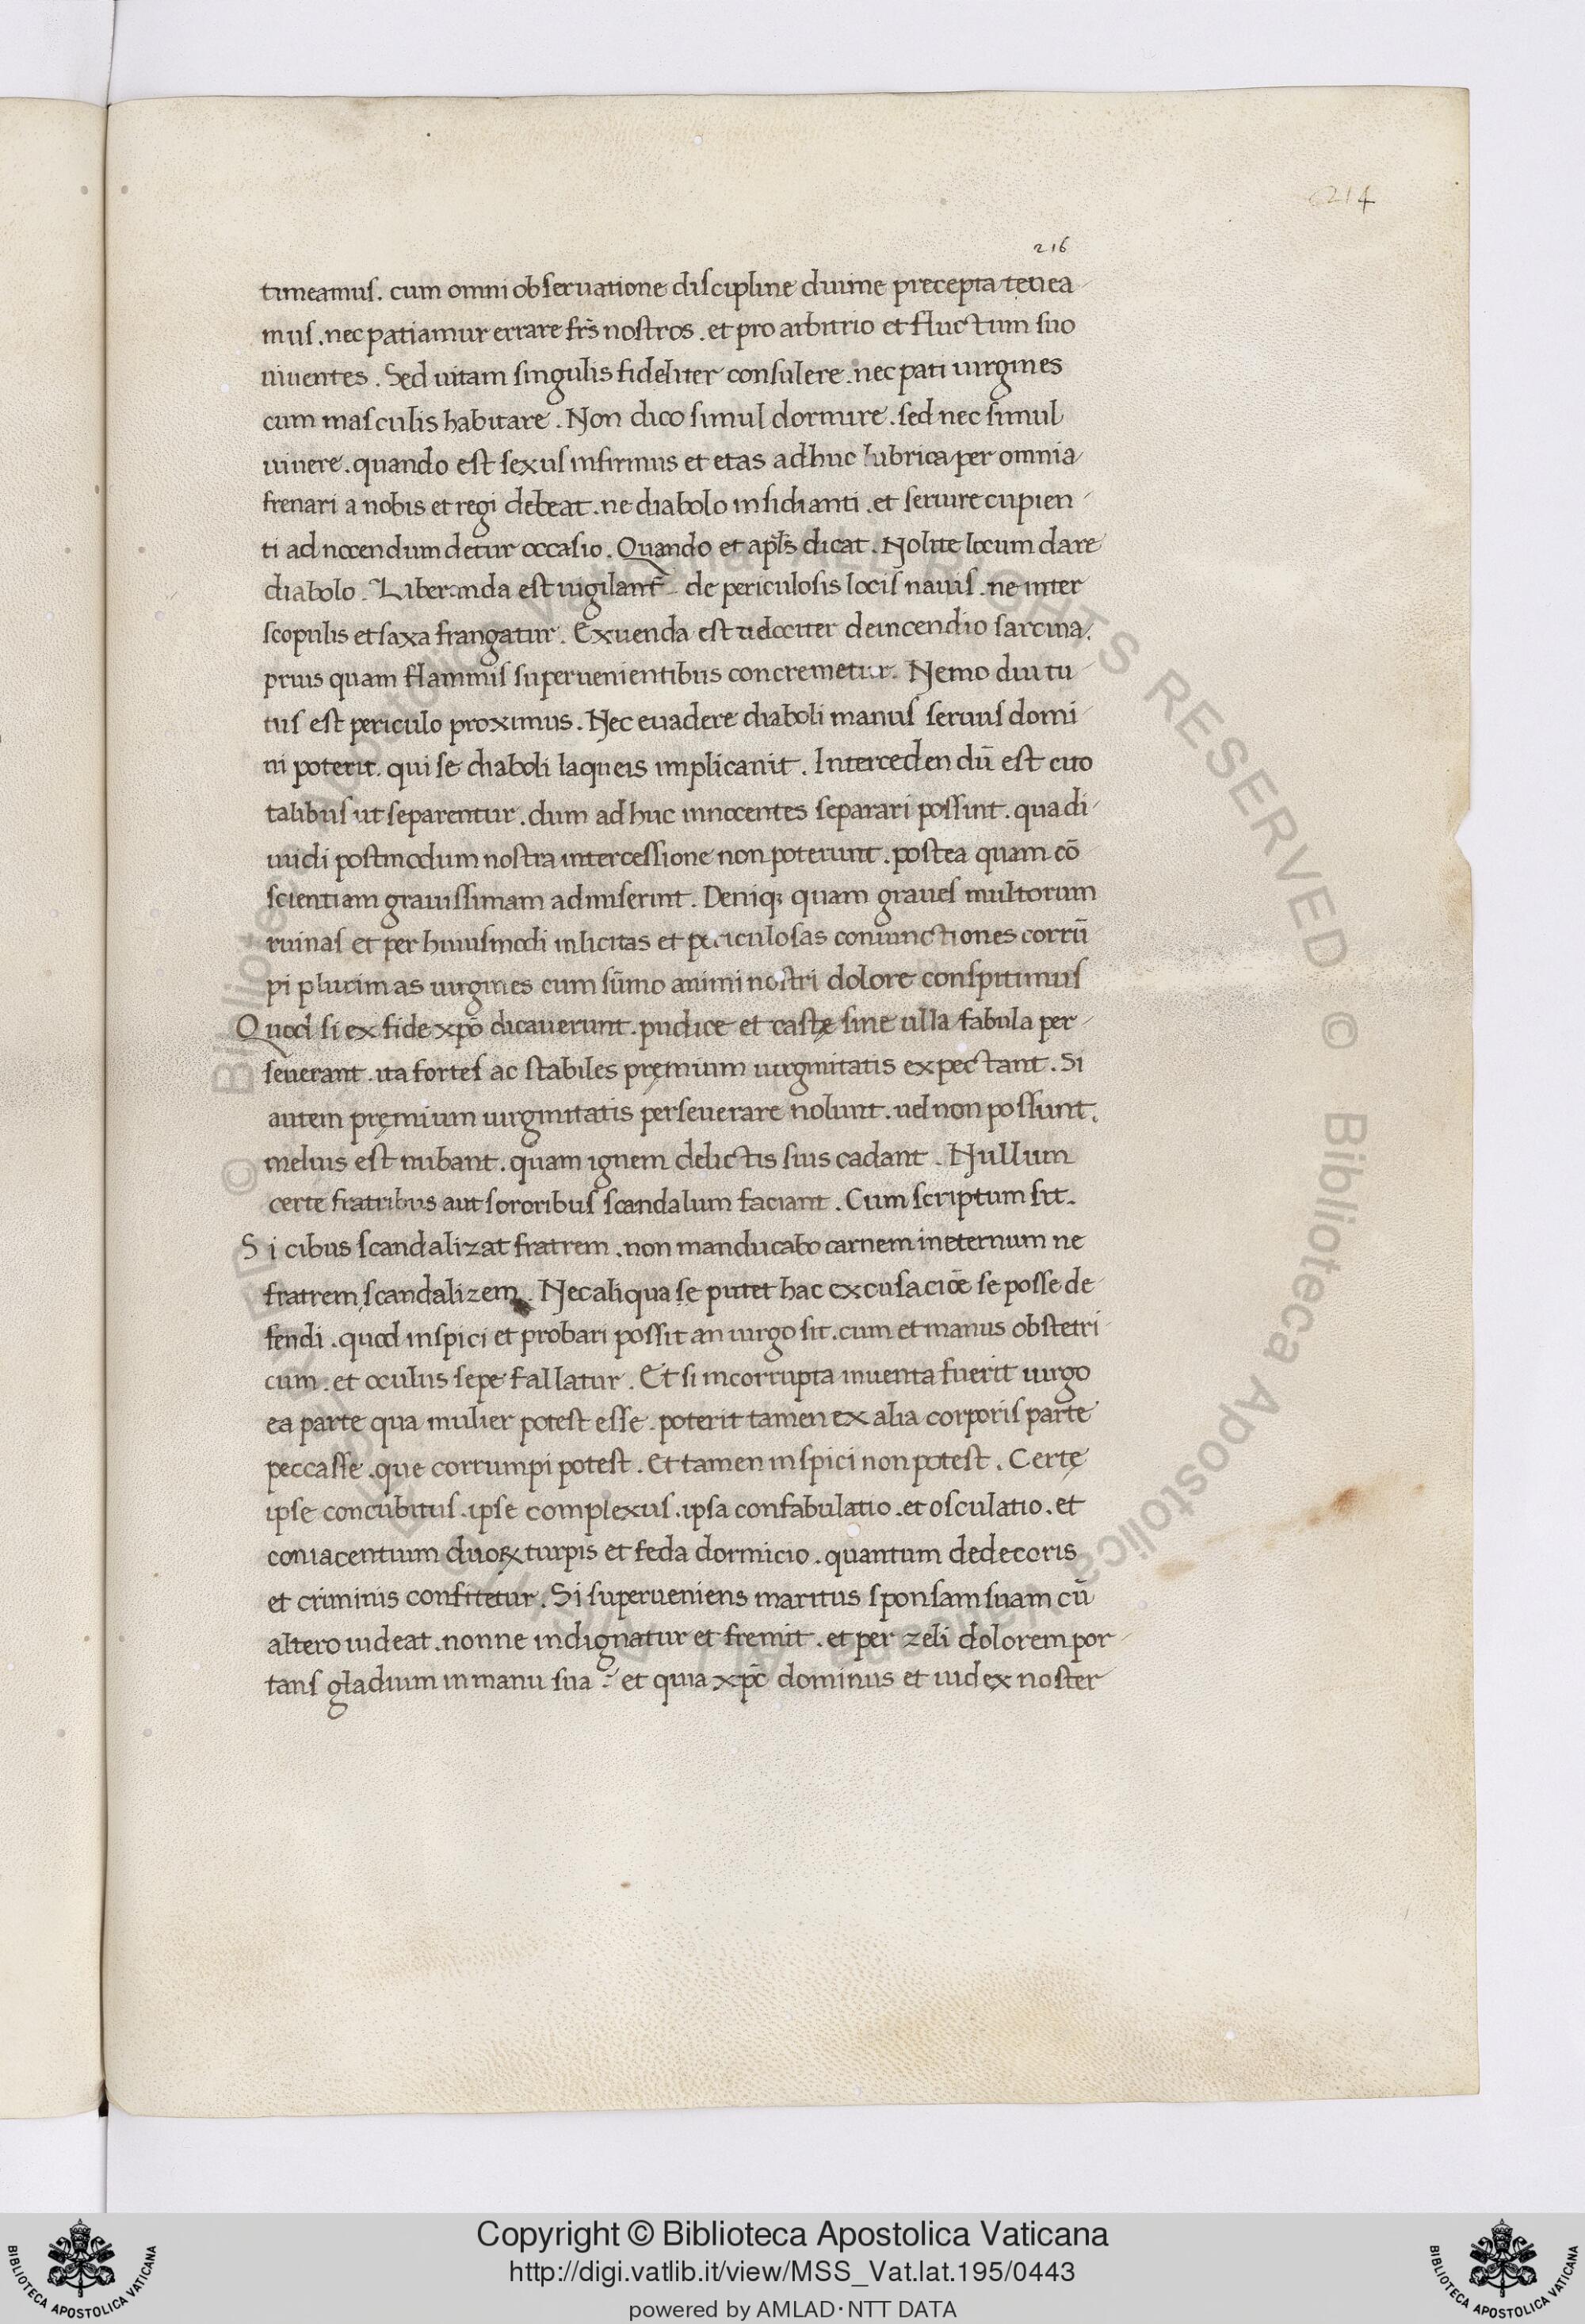 214
216
timeamus. cum omni obseruatione discipline diuine precepta tenea
mus. nec patiamur errare fr̄s nostros. et pro arbitrio et fluctum suo
uiuentes. Sed uitam singulis fideliter consulere. nec pati uirgines
cum masculis habitare. Non dico simul dormire. sed nec simul
uiuere. quando est sexus infirmus et etas adhuc lubrica per omnia
frenari a nobis et regi debeat. ne diabolo insidianti. et seruire cupien
ti ad nocendum detur occasio. Quando et apl̄s dicat. Nolite locum dare
diabolo. Liberanda est uigilant̄ de periculosis locis nauis. ne inter
scopulis et saxa frangatur. Exuenda est uelociter de incendio sarcina.
prius quam flammis superuenientibus concremetur. Nemo diu tu
tus est periculo proximus. Nec euadere diaboli manus seruus domi
ni poterit. qui se diaboli laqueis implicauit. Intercedendū est cito
talibus ut separentur. dum adhuc innocentes separari possint. qua di
uidi postmodum nostra intercessione non poterunt. postea quam cō
scientiam grauissimam admiserint. Deniq; quam graues multorum
ruinas et per huiusmodi inlicitas et periculosas coniunctiones corrū
pi plurimas uirgines cum sūmo animi nostri dolore conspicimus
Quod si ex fide xp̄o dicauerunt. pudice et castę sine ulla fabula per
seuerant. ita fortes ac stabiles pręmium uirginitatis expectant. Si
autem pręmium uirginitatis perseuerare nolunt. uel non possunt.
melius est nubant. quam ignem delictis suis cadant. Nullum
certe fratribus aut sororibus scandalum faciant. Cum scriptum sit.
Si cibus scandalizat fratrem. non manducabo carnem in eternum ne
fratrem scandalizem. Nec aliqua se putet hac excusaciōe se posse de
fendi. quod inspici et probari possit an uirgo sit. cum et manus obstetri
cum. et oculus sepe fallatur. Et si incorrupta inuenta fuerit uirgo
ea parte qua mulier potest esse. poterit tamen ex alia corporis parte
peccasse. que corrumpi potest. Et tamen inspici non potest. Certę
ipse concubitus. ipse complexus. ipsa confabulatio. et osculatio. et
coniacentium duoꝝ turpis et feda dormicio. quantum dedecoris
et criminis confitetur. Si superueniens maritus sponsam suam cū
altero uideat. nonne indignatur et fremit. et per zeli dolorem por
tans gladium in manu sua? et quia xp̄c dominus et iudex noster
Copyright © Biblioteca Apostolica Vaticana
http://digi.vatlib.it/view/MSS_Vat.lat.195/0443
powered by AMLAD·NTT DATA
BIBLIOTECA APOSTOLICA VATICANA
BIBLIOTECA APOSTOLICA VATICANA